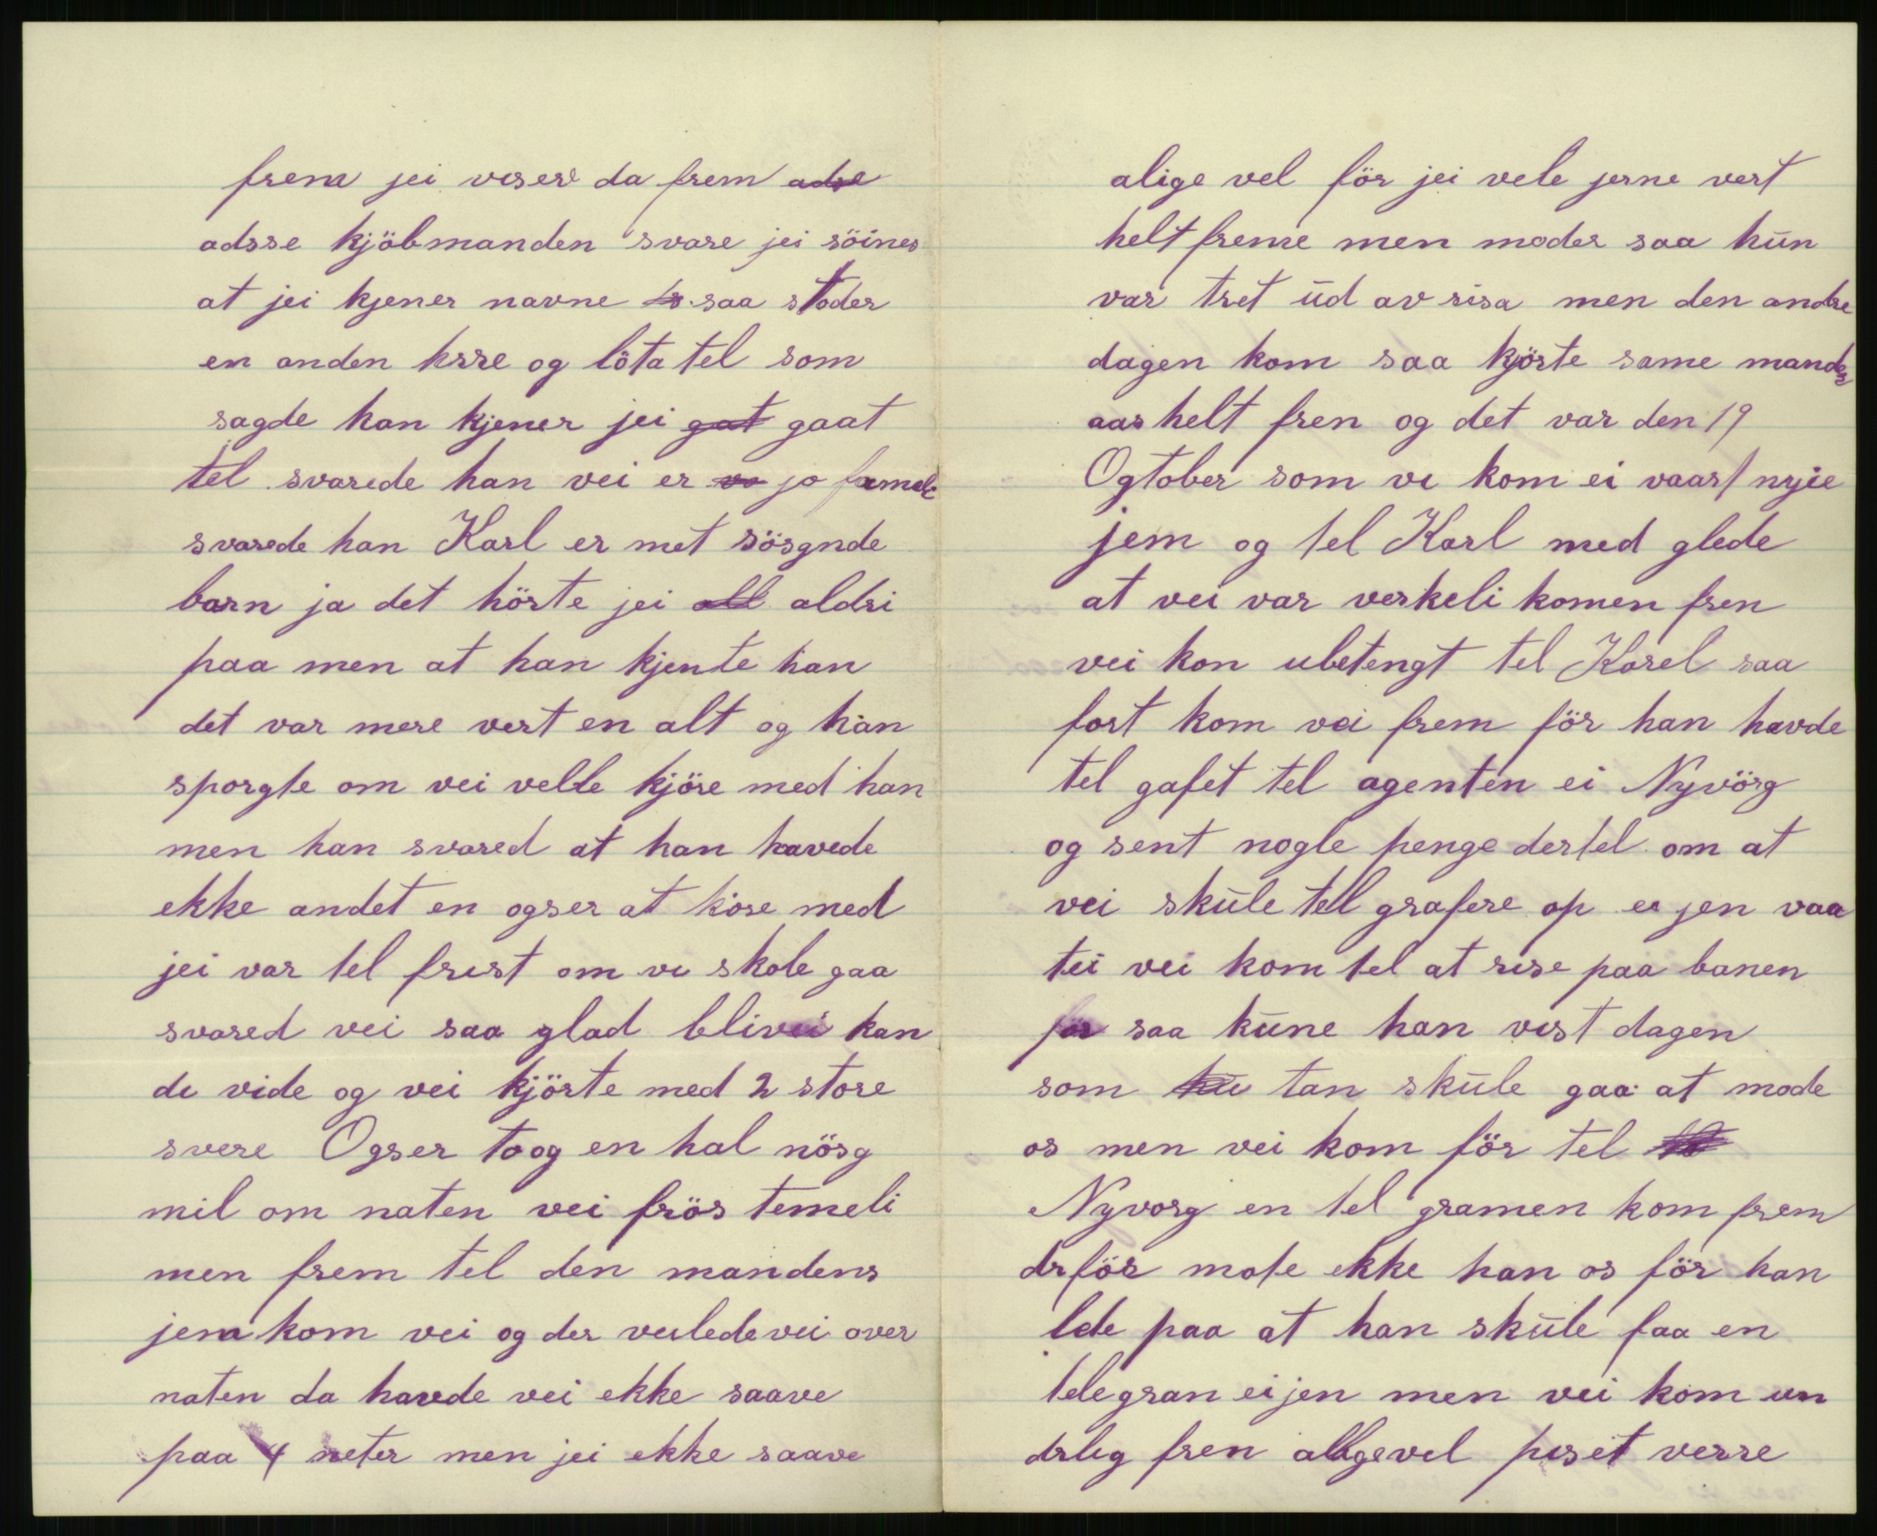 frem jei viser da frem adse
adsse kjöbmanden svare jei söines
at jei kjener navne saa stoder
en anden herre og löta tel som
sagde han kjener jei gat gaat
tel svarede han vei er vo jo famele
svarede han Karl er met sösgnde
barn ja det hörte jei all aldri
paa men at han kjente han
det var mere vert en alt og han
sporgte om vei velle kjöre med han
men han svared at han havede
ekke andet en ogser at köre med
jei var tel frist om vi skole gaa
svared vei saa glad blivei kan
di vide og vei kjörte med 2 store
svere Ogser toog en hal nörg
mil om naten vei frös temeli
men frem tel den mandens
jem kom vei og der veilede vei over
naten da havde vei ekke saave
paa 4 neter men jei ekke saave
alige vel för jei vele jerne vert
helt freme men moder saa hun
var tret ud av risa men den andre
dagen kom saa kjörte same manden
aas helt fren og det var den 19
Ogtober som vi kom ei vaart nyie
jem og tel Karl med glede
at vei var verkeli komen fren
vei kon ubetengt tel Karel saa
fort kom vei frem för han havde
tel gafet tel agenten ei Nyvörg
og sent nogle penge dertel om at
vei skule tell grafere op ei jen vaa
tei vei kom tel at rise paa banen
för saa kune han vist dagen
som hu tan skule gaa at mode
os men vei kom för tel
Nyvorg en tel gramen kom frem
drför mote ekke han os för han
lde paa at han skule faa en
telegran ei jen men vei kom un
drlig fren alligevel priset verre